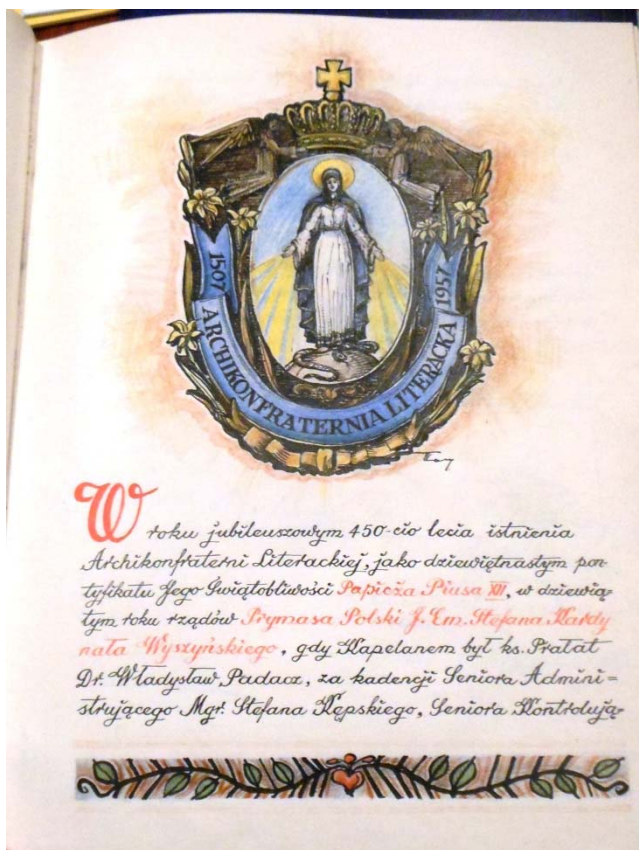 1507 ARCHIKONFRATERNIA LITERACKA 1957
W roku jubileuszowym 450-cio lecia istnienia
Archikonfraterni Literackiej, jako dziewiętnastym pon-
tyfikatu Jego Świątobliwości Papieża Piusa XII, w dziewią-
tym roku rządów Prymasa Polski J. Em. Stefana Kardy
nała Wyszyńskiego, gdy Kapelanem był ks. Prałat
Dr. Władysław Padacz, za kadencji Seniora Admini=
strującego Mgr. Stefana Kępskiego, Seniora Kontrolują-